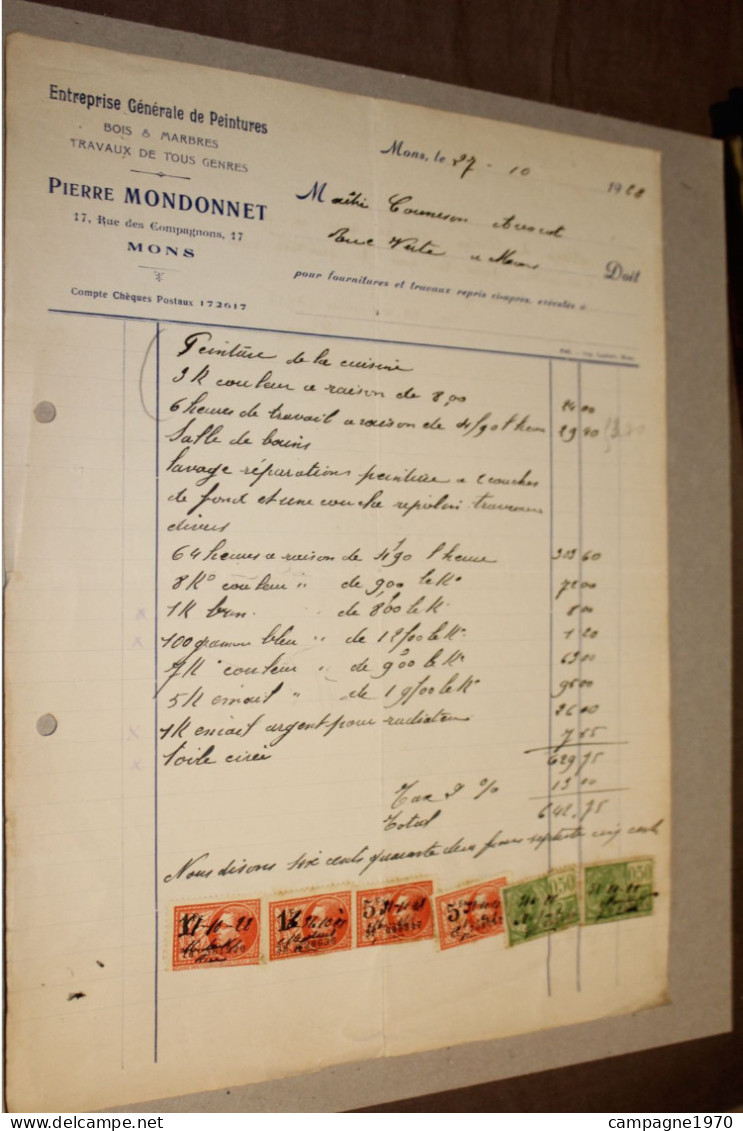 Entreprise Générale de Peintures
BOIS & MARBRES
TRAVAUX DE TOUS GENRES
PIERRE MONDONNET
17, Rue des Compagnons, 17
MONS
Compte Chèques Postaux 172617
Mons, le 27 - 10 1928
Maître Avocat
Rue Verte a Mons Doit
pour fournitures et travaux repris ci-après, exécutés
Peinture de la cuisine
3 K couleur a raison de 8,00 24 00
6 heures de travail a raison de 4/90 l'heure 29 40
Salle de bains
Lavage réparations peinture a 2 couches
de fond et une couche ripolin travaux
divers
64 heures a raison de 4,90 l'heure 313 60
8 K° couleur " de 9,00 le K° 72 00
1 K brun " de 8,00 le K° 8 00
100 grammes bleu " de 12/00 le K° 1 20
7 K° couleur " de 9,00 le K° 63 00
5 K émail " de 19/00 le K° 95 00
1 K émail argent pour radiateur 26 00
Toile cirée 7 55
629 75
Tax 2 % 13 00
Total 642,75
Nous disons six cents quarante deux francs septante cinq cents
31-10-28
0,50
0,50
campagne1970